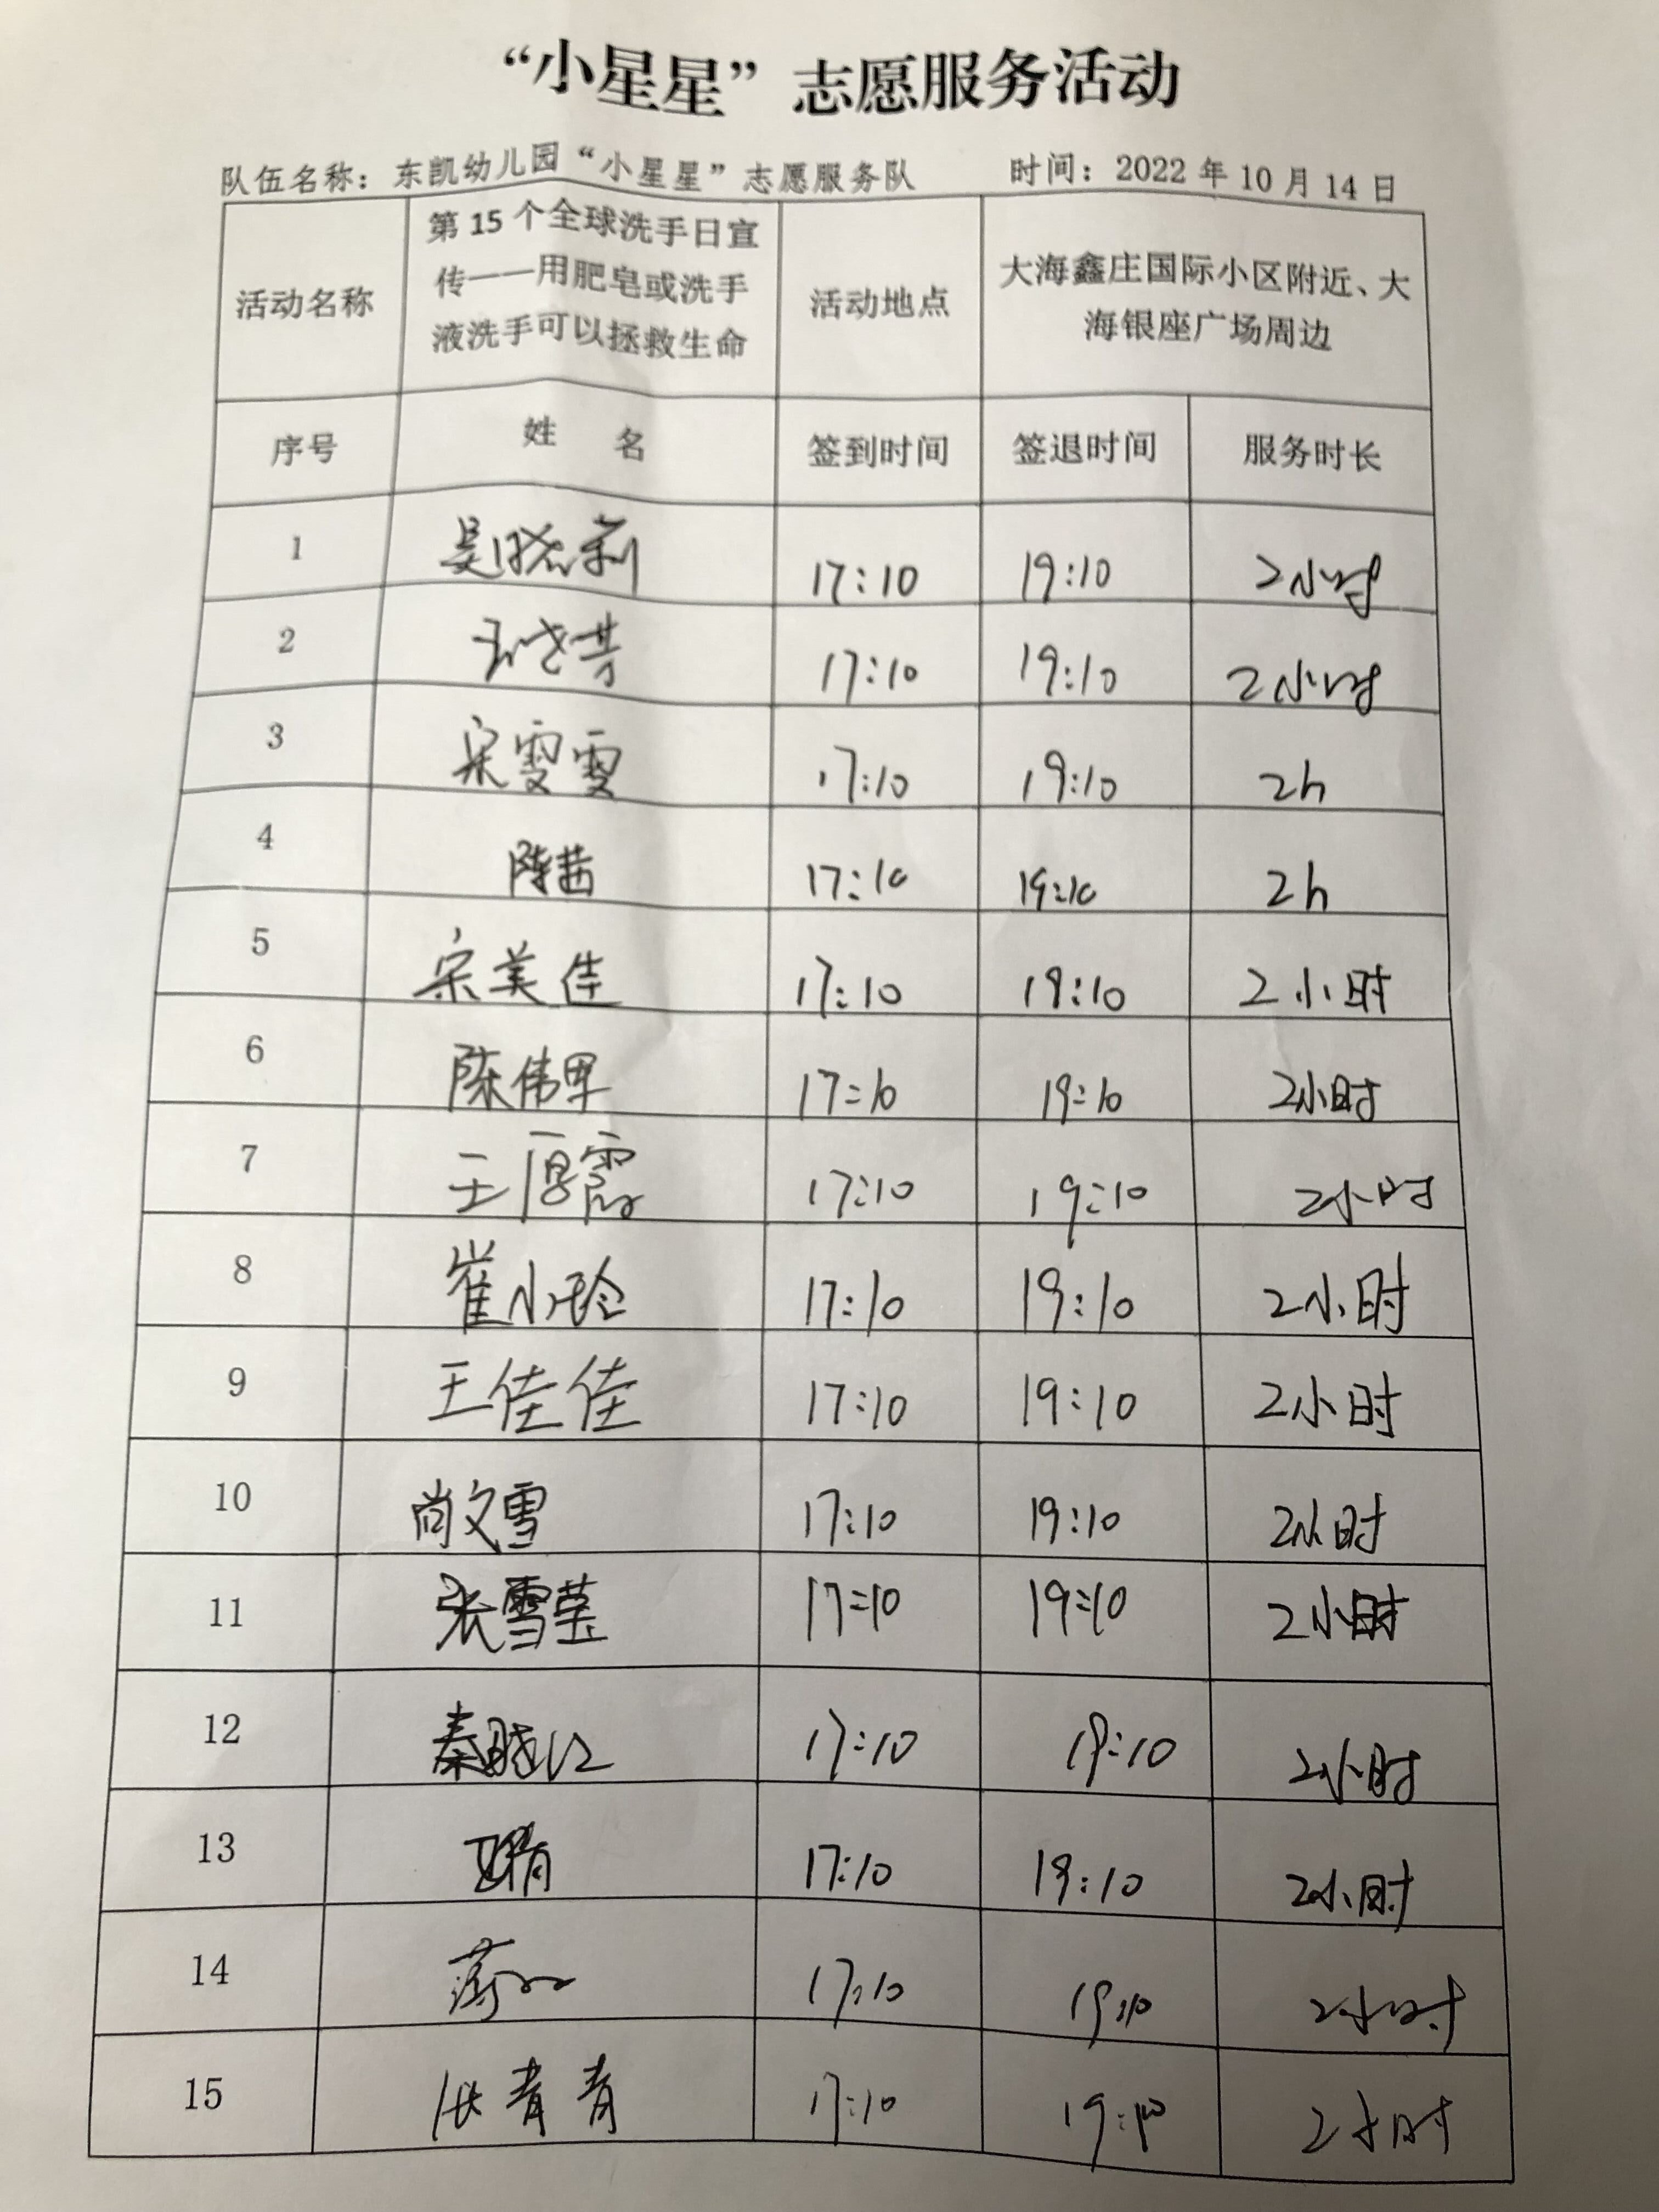 “小星星”志愿服务活动
队伍名称：东凯幼儿园“小星星”志愿服务队 时间：2022年10月14日
活动名称 第15个全球洗手日宣传——用肥皂或洗手液洗手可以拯救生命 活动地点 大海鑫庄国际小区附近、大海银座广场周边
序号 姓 名 签到时间 签退时间 服务时长
1 吴晓莉 17:10 19:10 2小时
2 17:10 19:10 2小时
3 宋雯雯 17:10 19:10 2h
4 陈茜 17:10 19:10 2h
5 宋美佳 17:10 19:10 2小时
6 陈伟 17:10 19:10 2小时
7 王厚霞 17:10 19:10 2小时
8 崔小玲 17:10 19:10 2小时
9 王佳佳 17:10 19:10 2小时
10 尚文雪 17:10 19:10 2小时
11 张雪莹 17:10 19:10 2小时
12 秦晓 17:10 19:10 2小时
13 17:10 19:10 2小时
14 17:10 19:10 2小时
15 张青青 17:10 19:10 2小时